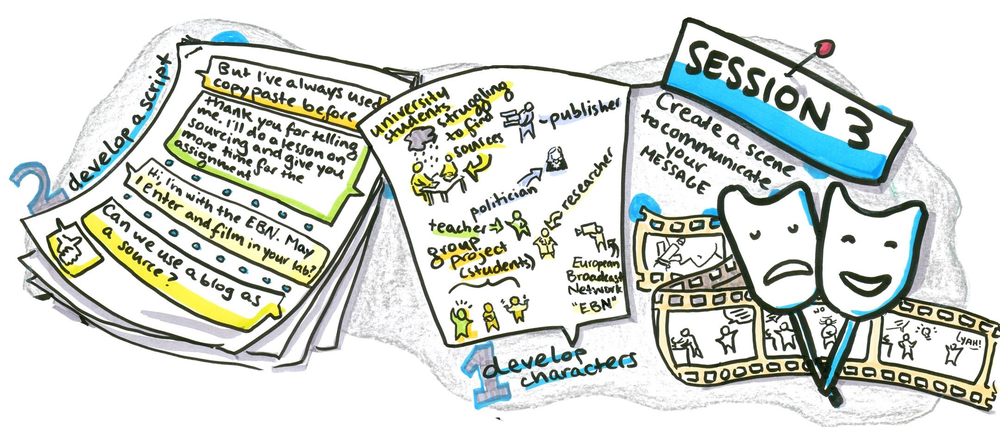 SESSION 3
Create a scene
to communicate
your
MESSAGE
1
develop
characters
university
students
struggling
to find
sources
publisher
politician
researcher
teacher
group
project
(students)
European
Broadcast
Network
"EBN"
2
develop a script
But I've always used
copy paste before
thank you for telling
me. I'll do a lesson on
sourcing and give you
more time for the
assignment
Hi! I'm with the EBN. May
I enter and film in your lab?
Can we use a blog as
a source?
LYAH!